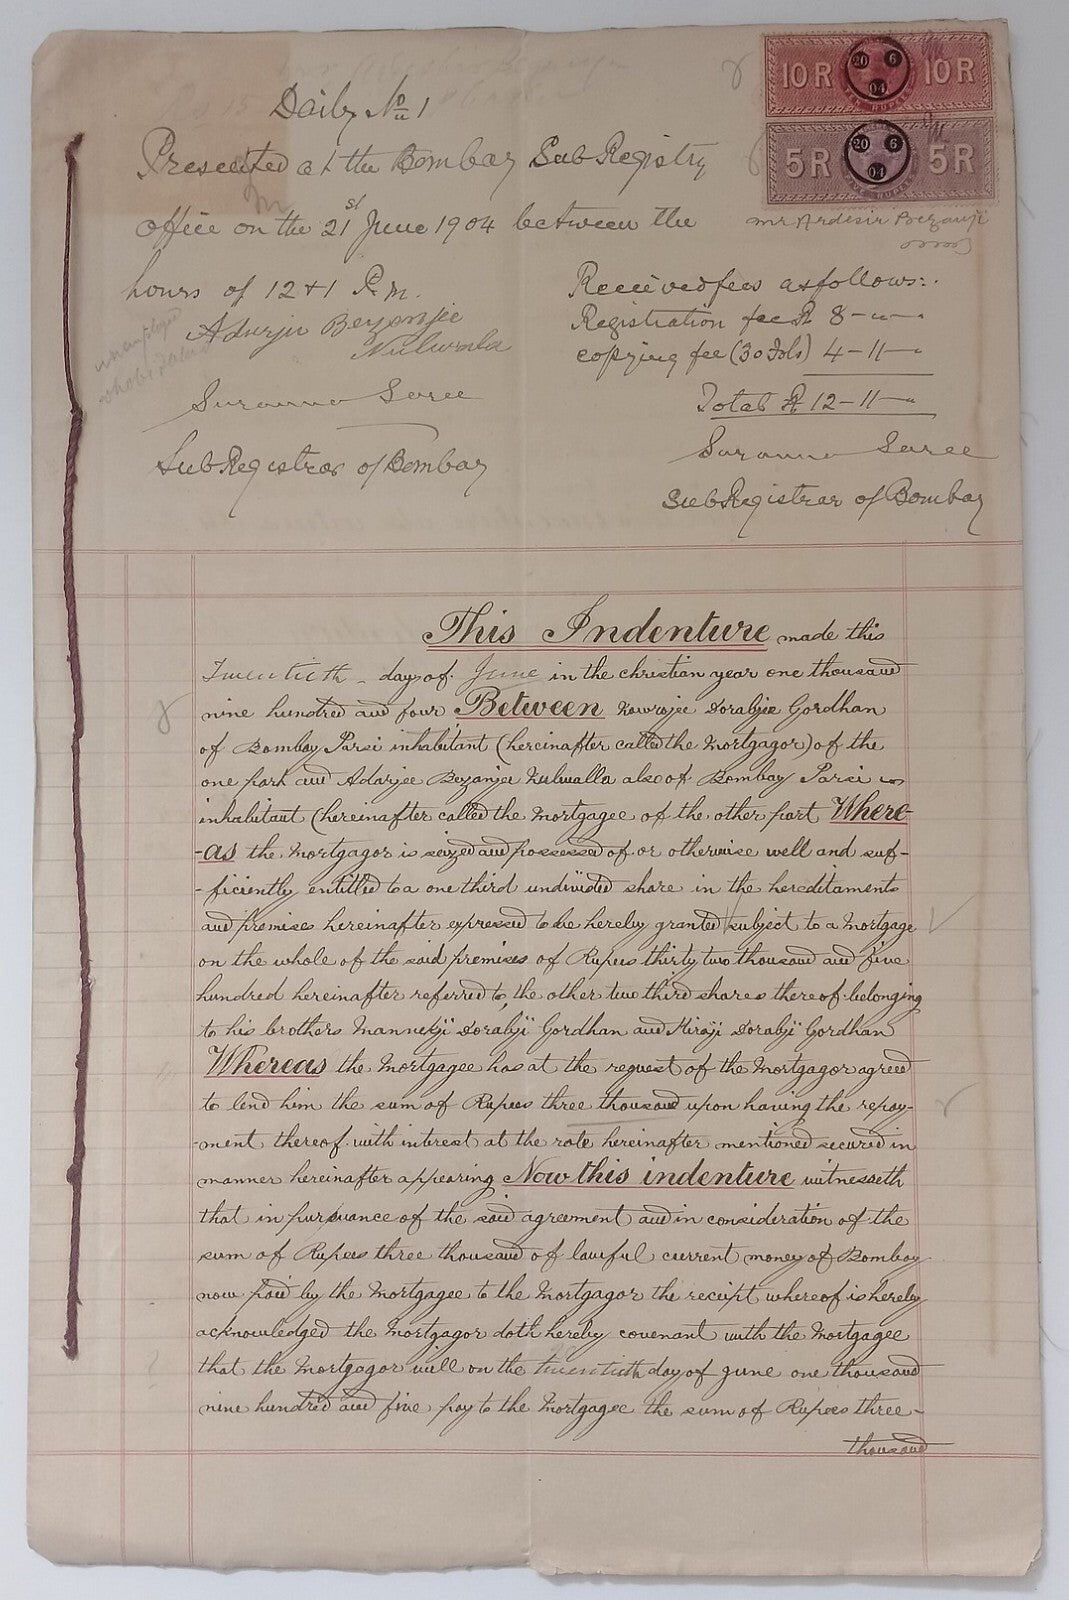 Daily No 1
Presented at the Bombay Sub Registry
office on the 21st June 1904 between the
hours of 12 & 1 P.m.
Adurji Bezonjee
Nulwala
Sub Registrar of Bombay
10 R 20 6 04 10 R
5 R 20 6 04 5 R
Mr Ardesir Bezanji
Received fees as follows:.
Registration fee R 8-"-"
copying fee (30 fols) 4-11-"
Total R 12-11-"
Sub Registrar of Bombay
This Indenture made this
Twentieth day of June in the christian year one thousand
nine hundred and four Between Nowrojee Dorabjee Gordhan
of Bombay Parsi inhabitant (hereinafter called the Mortgagor) of the
one part and Adarjee Bezanjee Nulwalla also of Bombay Parsi in
inhabitant (hereinafter called the Mortgagee of the other part Where-
-as the Mortgagor is seized and possessed of or otherwise well and suf-
-ficiently entitled to a one third undivided share in the hereditaments
and premises hereinafter expressed to be hereby granted subject to a Mortgage
on the whole of the said premises of Rupees thirty two thousand and five
hundred hereinafter referred to, the other two third shares thereof belonging
to his brothers Mannekji Dorabji Gordhan and Hiraji Dorabji Gordhan
Whereas the Mortgagee has at the request of the Mortgagor agreed
to lend him the sum of Rupees three thousand upon having the repay-
-ment thereof with interest at the rate hereinafter mentioned secured in
manner hereinafter appearing Now this indenture witnesseth
that in pursuance of the said agreement and in consideration of the
sum of Rupees three thousand of lawful current money of Bombay
now paid by the Mortgagee to the Mortgagor the receipt whereof is hereby
acknowledged the Mortgagor doth hereby covenant with the Mortgagee
that the Mortgagor will on the twentieth day of June one thousand
nine hundred and five pay to the Mortgagee the sum of Rupees three-
thousand